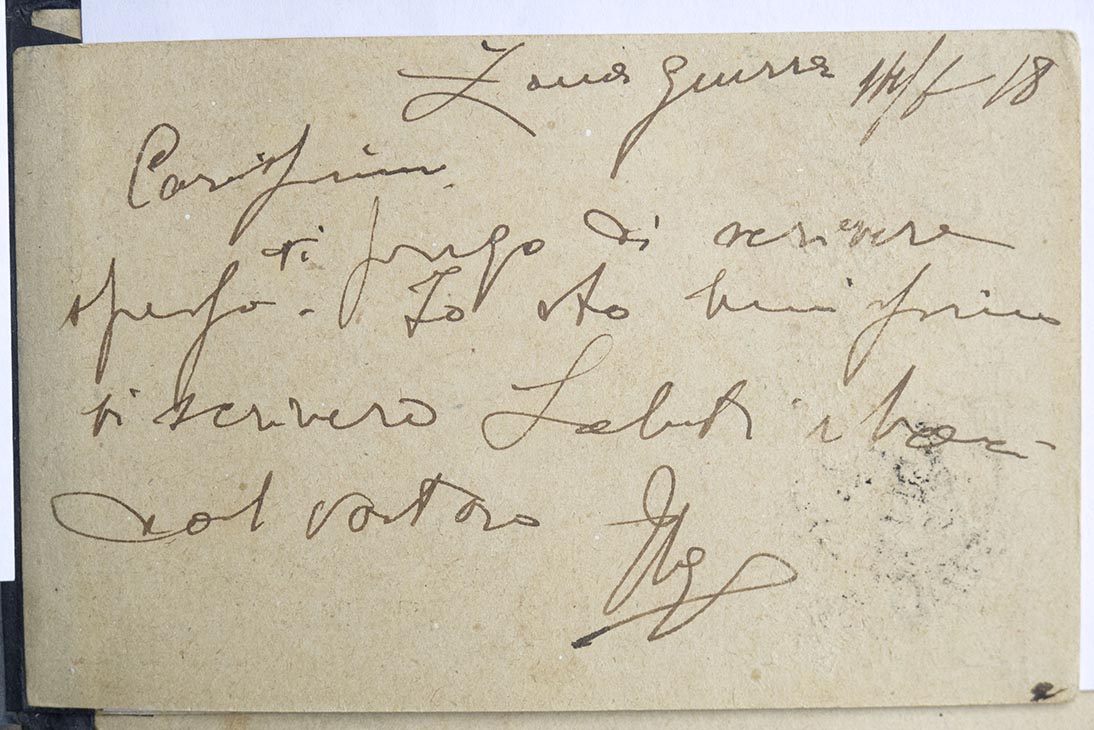 Zona Guerra 14/6 18
Carissimi
vi prego di scrivere
spesso. Io sto benissimo
vi scriverò Saluti e baci
dal vostro